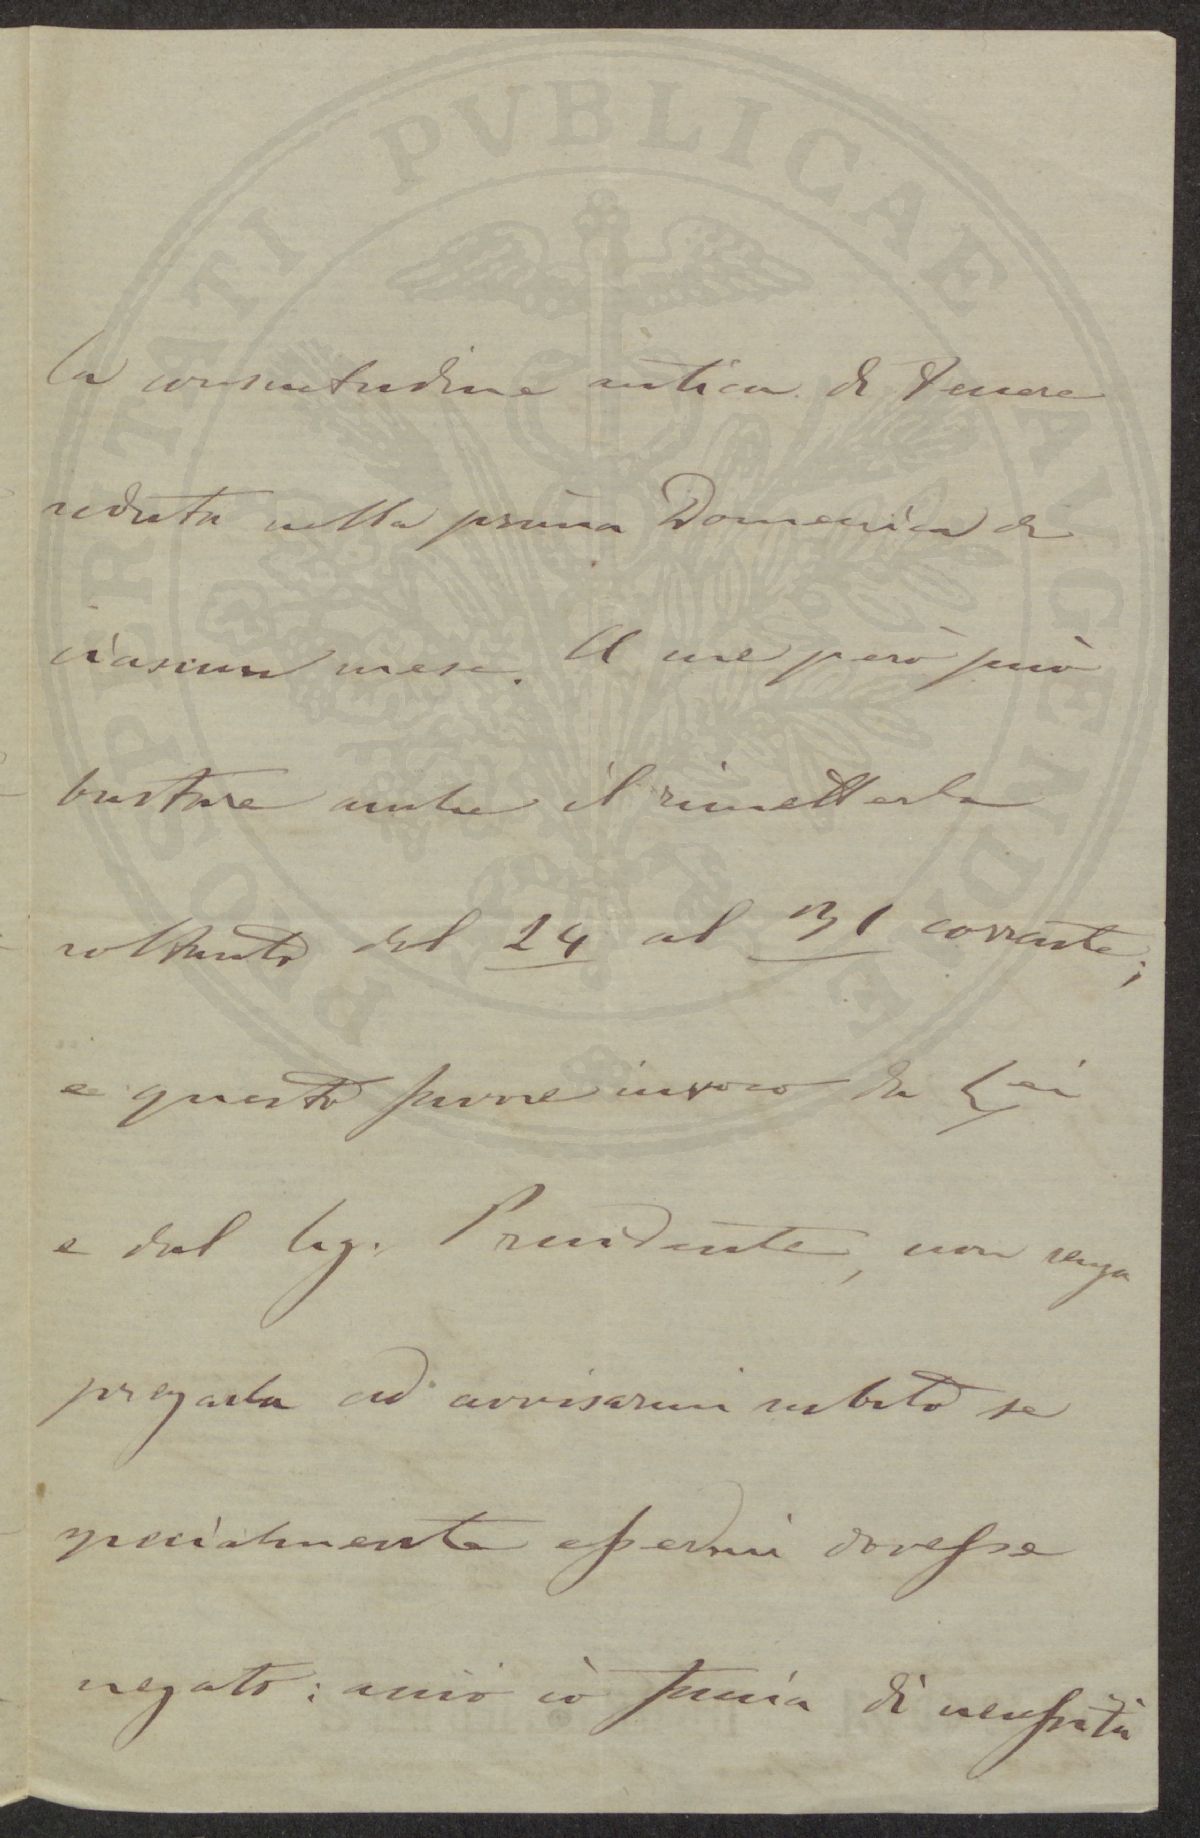 PROSPERITATI PVBLICAE AVGENDAE
la consuetudine antica di tenere
seduta nella prima Domenica di
ciascun mese. A me però può
bastare anche il rimetterla
soltanto dal 24 al 31 corrente;
e questo favore invoco da Lei
e dal Sig. Presidente, non senza
pregarla ad avvisarmi subito se
specialmente essermi dovesse
negato: acciò io faccia di necessità